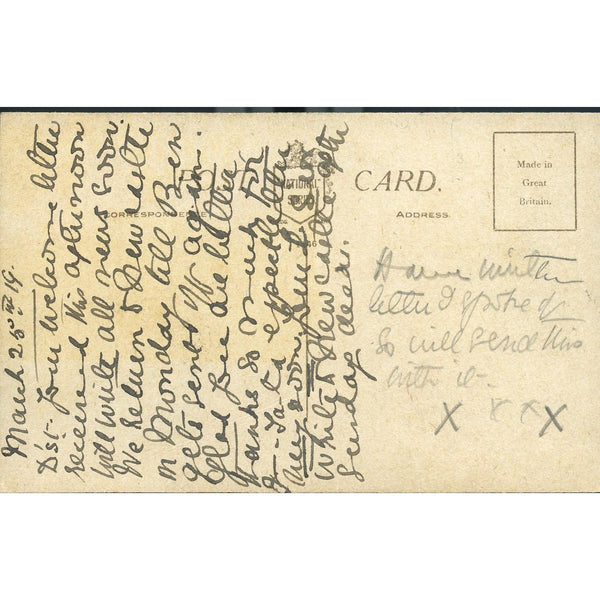 March 25th 19.
D'st - Your welcome letter
received this afternoon
Will write all news soon.
We return to Newcastle
on Monday till Ben
gets sent off again.
Glad you are better
Thanks so much for
expect letter
very soon Send
while to Newcastle after
Sunday dear.
POST CARD.
NATIONAL
SERIES
CORRESPONDENCE
ADDRESS.
Made in
Great
Britain.
Have written
letter I spoke of
So will send this
with it -
X X X X